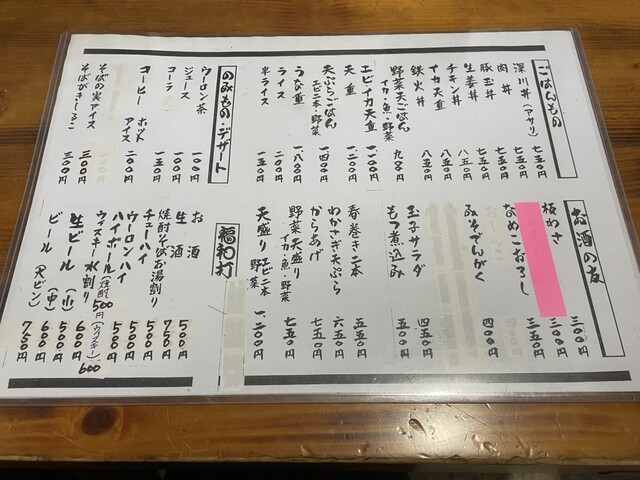 ごはんもの
深川丼(アサリ) 七五〇円
肉丼 七五〇円
豚玉丼 七五〇円
生姜丼 七五〇円
チキン丼 八五〇円
イカ天丼 八五〇円
鉄火丼 八五〇円
野菜天ごはん イカ・魚・野菜 九五〇円
エビイカ天重 一、一〇〇円
天重 一、二〇〇円
天ぷらごはん エビ二本・野菜 一、四〇〇円
うな重 一、八〇〇円
ライス 二〇〇円
半ライス 一五〇円
のみもの・デザート
ウーロン茶 一〇〇円
ジュース 一〇〇円
コーラ 一五〇円
コーヒー ホット アイス 二〇〇円
そばの実アイス 三〇〇円
そばがきしるこ 三〇〇円
お酒の友
板わさ 三〇〇円
三五〇円
なめこおろし 三五〇円
みそでんがく 四〇〇円
玉子サラダ 四五〇円
もつ煮込み 五五〇円
春巻き二本 五五〇円
わかさぎ天ぷら 六五〇円
からあげ 七五〇円
野菜天盛り イカ・魚・野菜 七五〇円
天盛り エビ二本 野菜 一、二〇〇円
福和打
お酒 500円
生酒 750円
焼酎そばお湯割り 500円
チューハイ 500円
ウーロンハイ 500円
ハイボール(焼酎500円)(ウイスキー)600
ウィスキー水割り 600円
生ビール(小) 500円
生ビール(中) 600円
ビール(大ビン) 750円